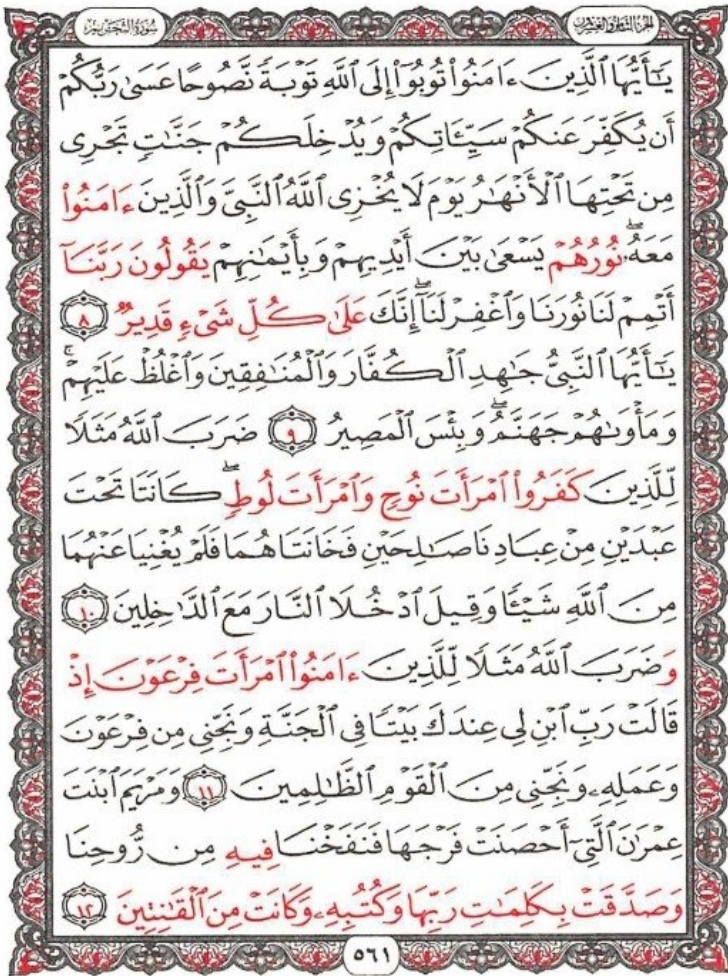 الجزء الثامن والعشرون
سُورَةُ التَّحۡرِيمِ
يَٰٓأَيُّهَا ٱلَّذِينَ ءَامَنُواْ تُوبُوٓاْ إِلَى ٱللَّهِ تَوۡبَةٗ نَّصُوحًا عَسَىٰ رَبُّكُمۡ
أَن يُكَفِّرَ عَنكُمۡ سَيِّـَٔاتِكُمۡ وَيُدۡخِلَكُمۡ جَنَّٰتٖ تَجۡرِي
مِن تَحۡتِهَا ٱلۡأَنۡهَٰرُ يَوۡمَ لَا يُخۡزِي ٱللَّهُ ٱلنَّبِيَّ وَٱلَّذِينَ ءَامَنُواْ
مَعَهُۥۖ نُورُهُمۡ يَسۡعَىٰ بَيۡنَ أَيۡدِيهِمۡ وَبِأَيۡمَٰنِهِمۡ يَقُولُونَ رَبَّنَآ
أَتۡمِمۡ لَنَا نُورَنَا وَٱغۡفِرۡ لَنَآۖ إِنَّكَ عَلَىٰ كُلِّ شَيۡءٖ قَدِيرٞ ٨
يَٰٓأَيُّهَا ٱلنَّبِيُّ جَٰهِدِ ٱلۡكُفَّارَ وَٱلۡمُنَٰفِقِينَ وَٱغۡلُظۡ عَلَيۡهِمۡۚ
وَمَأۡوَىٰهُمۡ جَهَنَّمُۖ وَبِئۡسَ ٱلۡمَصِيرُ ٩ ضَرَبَ ٱللَّهُ مَثَلٗا
لِّلَّذِينَ كَفَرُواْ ٱمۡرَأَتَ نُوحٖ وَٱمۡرَأَتَ لُوطٖۖ كَانَتَا تَحۡتَ
عَبۡدَيۡنِ مِنۡ عِبَادِنَا صَٰلِحَيۡنِ فَخَانَتَاهُمَا فَلَمۡ يُغۡنِيَا عَنۡهُمَا
مِنَ ٱللَّهِ شَيۡـٔٗا وَقِيلَ ٱدۡخُلَا ٱلنَّارَ مَعَ ٱلدَّٰخِلِينَ ١٠
وَضَرَبَ ٱللَّهُ مَثَلٗا لِّلَّذِينَ ءَامَنُواْ ٱمۡرَأَتَ فِرۡعَوۡنَ إِذۡ
قَالَتۡ رَبِّ ٱبۡنِ لِي عِندَكَ بَيۡتٗا فِي ٱلۡجَنَّةِ وَنَجِّنِي مِن فِرۡعَوۡنَ
وَعَمَلِهِۦ وَنَجِّنِي مِنَ ٱلۡقَوۡمِ ٱلظَّٰلِمِينَ ١١ وَمَرۡيَمَ ٱبۡنَتَ
عِمۡرَٰنَ ٱلَّتِيٓ أَحۡصَنَتۡ فَرۡجَهَا فَنَفَخۡنَا فِيهِ مِن رُّوحِنَا
وَصَدَّقَتۡ بِكَلِمَٰتِ رَبِّهَا وَكُتُبِهِۦ وَكَانَتۡ مِنَ ٱلۡقَٰنِتِينَ ١٢
٥٦١